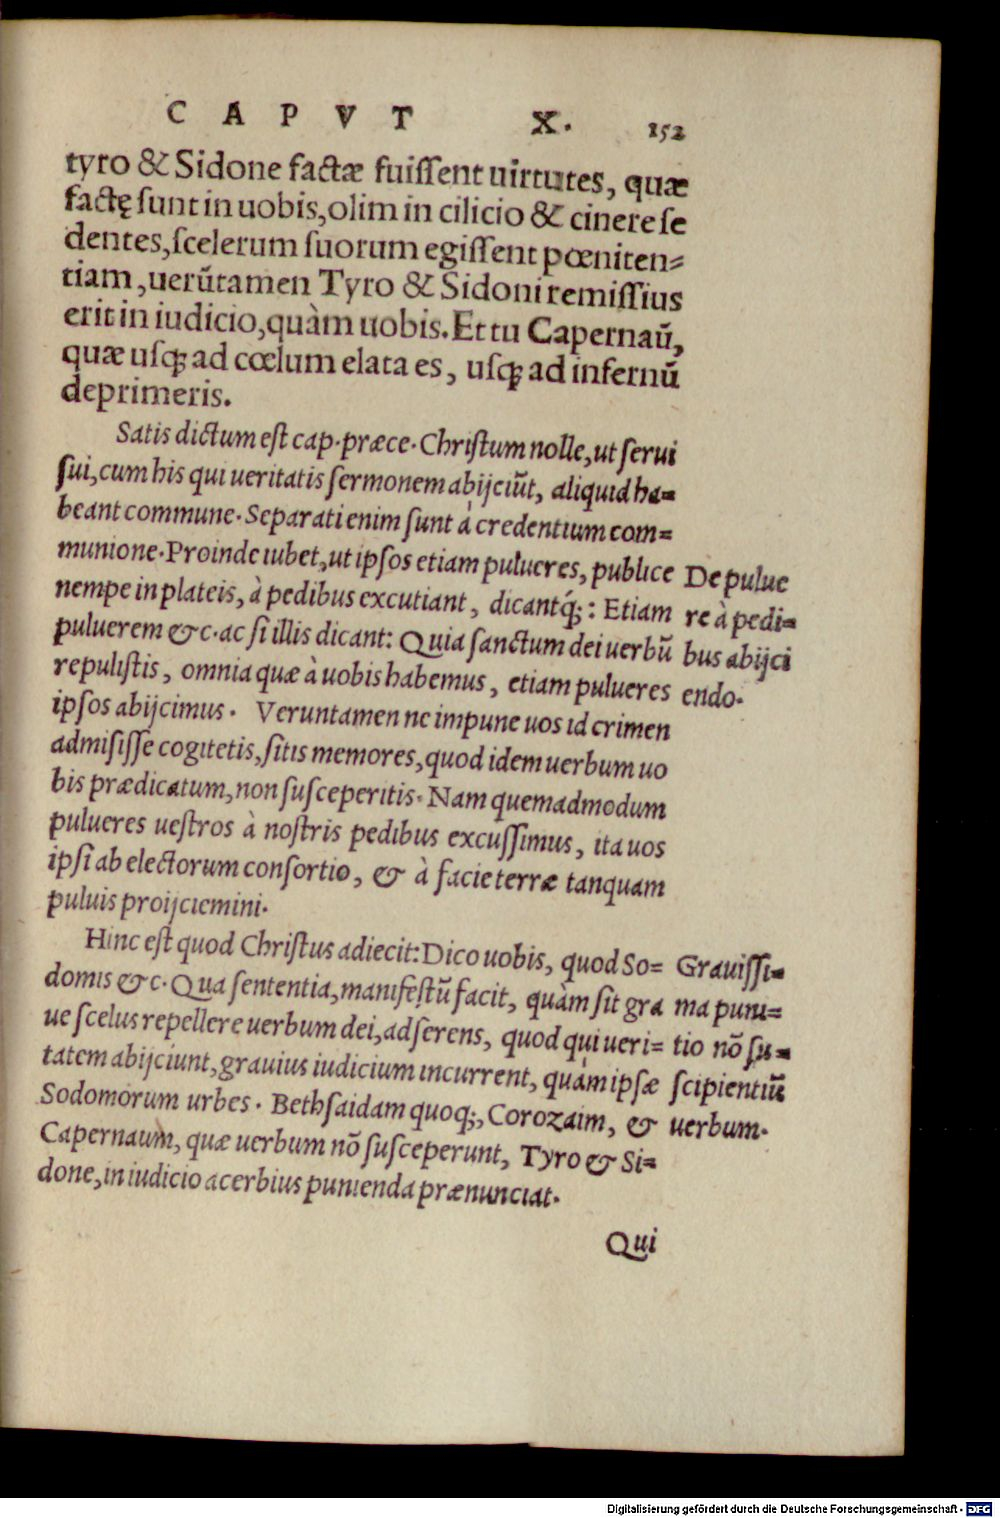 CAPVT X. 152
tyro & Sidone factæ fuiſſent uirtutes, quæ
factę ſunt in uobis, olim in cilicio & cinere ſe
dentes, ſcelerum ſuorum egiſſent pœniten⸗
tiam, uerũtamen Tyro & Sidoni remiſſius
erit in iudicio, quàm uobis. Et tu Capernaũ,
quæ uſq; ad cœlum elata es, uſq; ad infernũ
deprimeris.
Satis dictum eſt cap. præce. Chriſtum nolle, ut ſerui
ſui, cum his qui ueritatis ſermonem abijciũt, aliquid ha⸗
beant commune. Separati enim ſunt à credentium com⸗
munione. Proinde iubet, ut ipſos etiam pulueres, publice
nempe in plateis, à pedibus excutiant, dicantq́;: Etiam
puluerem &c. ac ſi illis dicant: Quia ſanctum dei uerbũ
repuliſtis, omnia quæ à uobis habemus, etiam pulueres
ipſos abijcimus. Veruntamen ne impune uos id crimen
admiſiſſe cogitetis, ſitis memores, quod idem uerbum uo
bis prædicatum, non ſuſceperitis. Nam quemadmodum
pulueres ueſtros à noſtris pedibus excuſſimus, ita uos
ipſi ab electorum conſortio, & à facie terræ tanquam
puluis proijciemini.
De pulue
re à pedi⸗
bus abijci
endo.
Hinc eſt quod Chriſtus adiecit: Dico uobis, quod So⸗
domis &c. Qua ſententia, manifeſtũ facit, quàm ſit gra
ue ſcelus repellere uerbum dei, adſerens, quod qui ueri⸗
tatem abijciunt, grauius iudicium incurrent, quàm ipſæ
Sodomorum urbes. Bethſaidam quoq;, Corozaim, &
Capernaum, quæ uerbum nõ ſuſceperunt, Tyro & Si⸗
done, in iudicio acerbius punienda prænunciat.
Grauiſſi⸗
ma puni⸗
tio nõ ſu⸗
ſcipientiũ
uerbum.
Qui
Digitalisierung gefördert durch die Deutsche Forschungsgemeinschaft - DFG